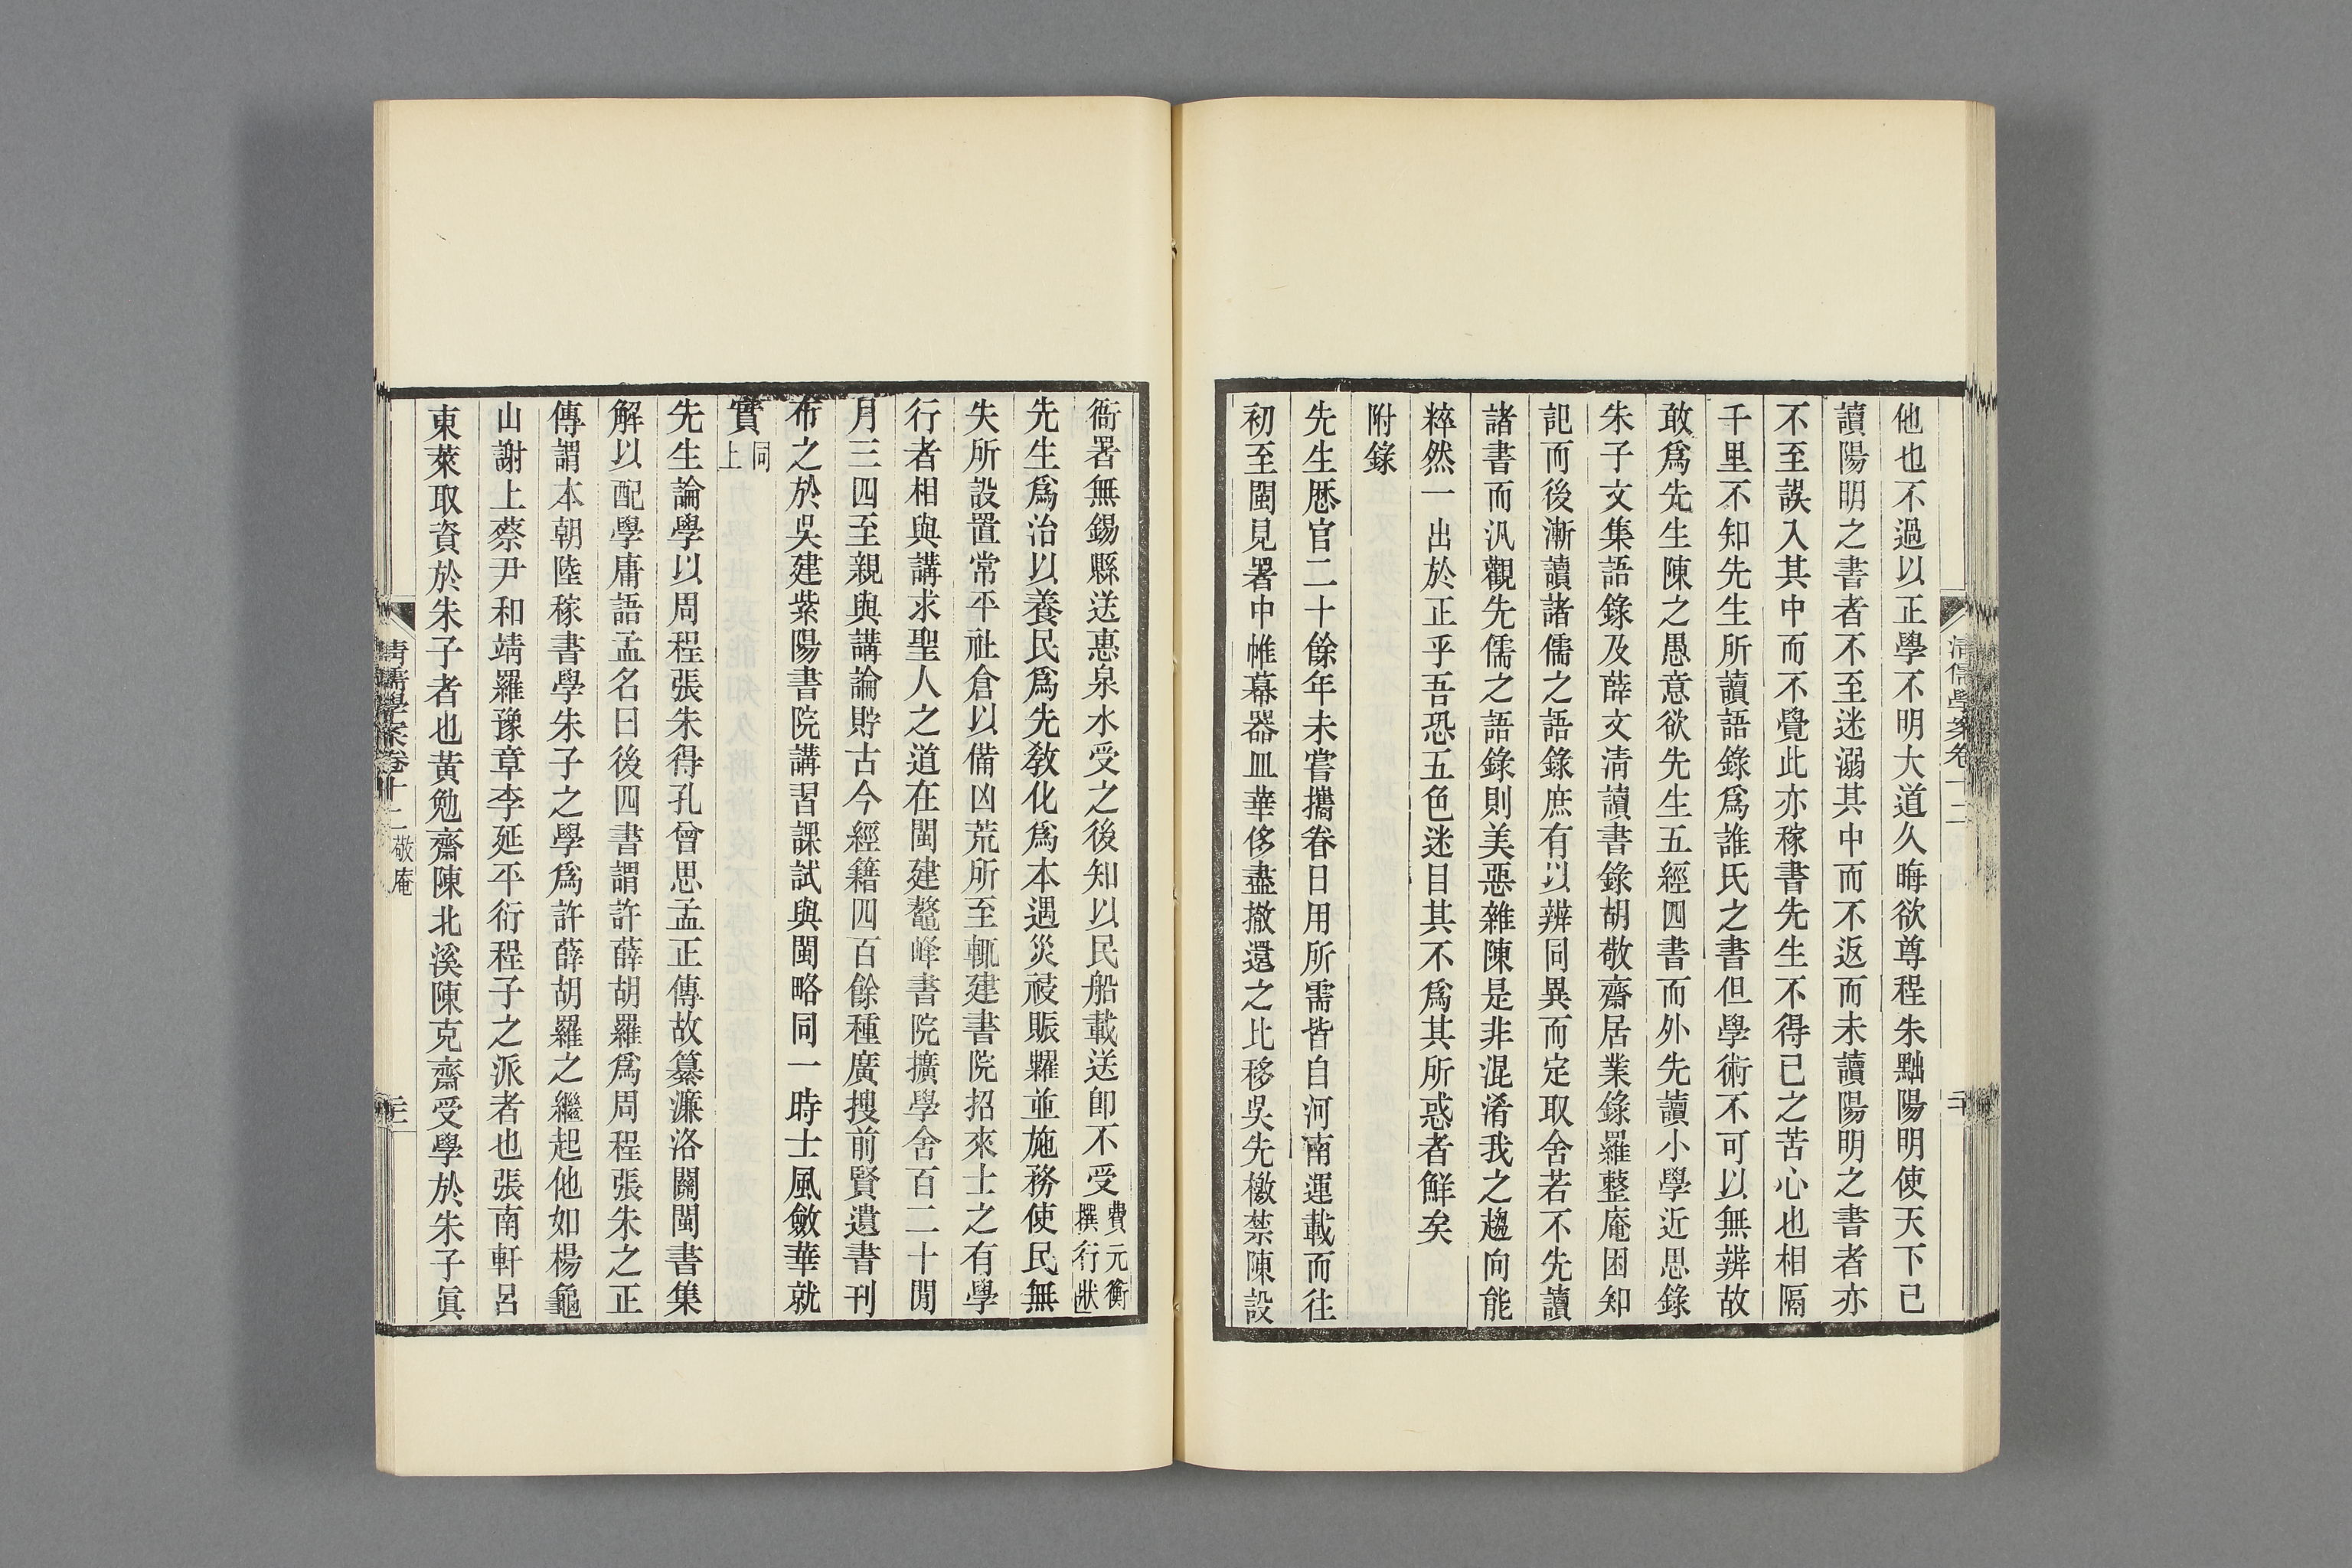 清儒學案卷十二
二十
他也不過以正學不明大道久晦欲尊程朱黜陽明使天下已
讀陽明之書者不至迷溺其中而不返而未讀陽明之書者亦
不至誤入其中而不覺此亦稼書先生不得已之苦心也相隔
千里不知先生所讀語錄爲誰氏之書但學術不可以無辨故
敢爲先生陳之愚意欲先生五經四書而外先讀小學近思錄
朱子文集語錄及薛文淸讀書錄胡敬齋居業錄羅整庵困知
記而後漸讀諸儒之語錄庶有以辨同異而定取舍若不先讀
諸書而汎觀先儒之語錄則美惡雜陳是非混淆我之趨向能
粹然一出於正乎吾恐五色迷目其不爲其所惑者鮮矣
附錄
先生歷官二十餘年未嘗攜眷日用所需皆自河南運載而往
初至閩見署中帷幕器皿華侈盡撤還之比移吳先檄禁陳設
衙署無錫縣送惠泉水受之後知以民船載送卽不受費元衡撰行狀
先生爲治以養民爲先敎化爲本遇災祲賑糶並施務使民無
失所設置常平社倉以備凶荒所至輒建書院招來士之有學
行者相與講求聖人之道在閩建鼇峰書院擴學舍百二十閒
月三四至親與講論貯古今經籍四百餘種廣搜前賢遺書刊
布之於吳建紫陽書院講習課試與閩略同一時士風斂華就
實同上
先生論學以周程張朱得孔曾思孟正傳故纂濂洛關閩書集
解以配學庸語孟名曰後四書謂許薛胡羅爲周程張朱之正
傳謂本朝陸稼書學朱子之學爲許薛胡羅之繼起他如楊龜
山謝上蔡尹和靖羅豫章李延平衍程子之派者也張南軒呂
東萊取資於朱子者也黃勉齋陳北溪陳克齋受學於朱子眞
清儒學案卷十二 敬庵